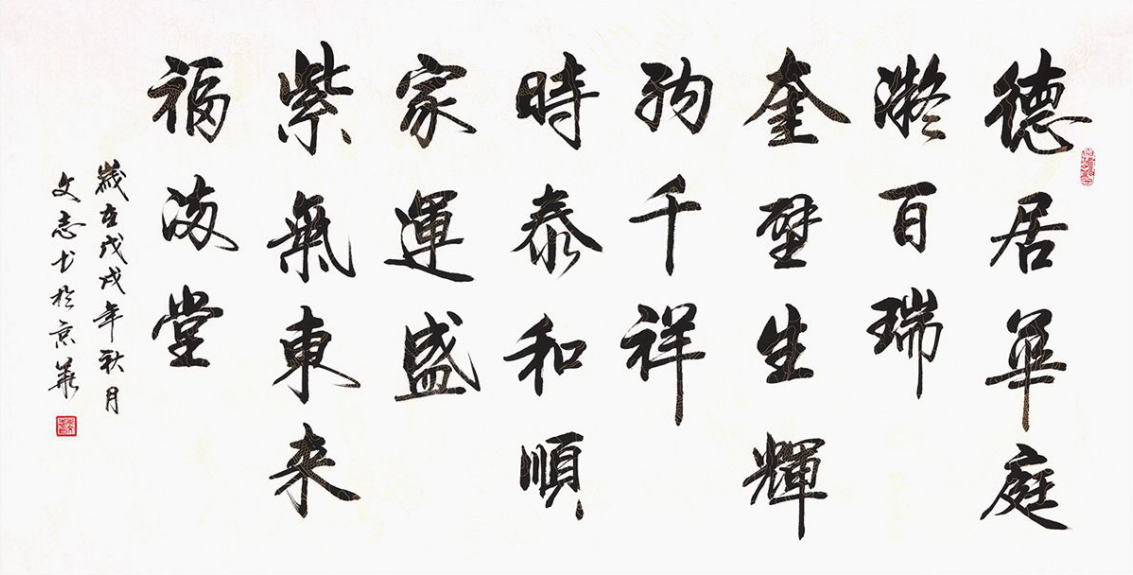 德居華庭
凝百瑞
奎壁生輝
千祥
時泰和順
家運盛
紫氣東來
福海堂
歲在戊戌年秋月
文志书於京華